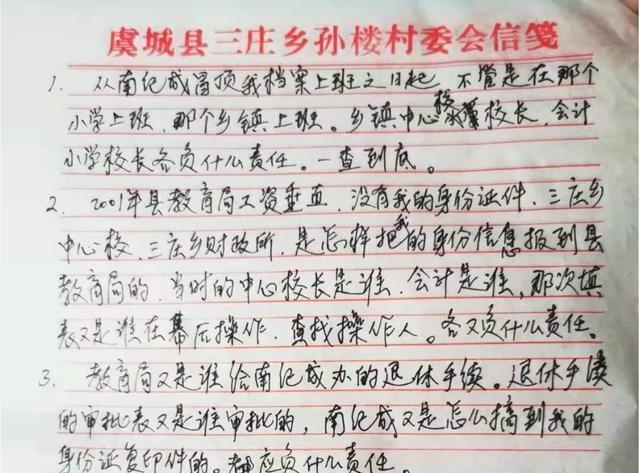 虞城县三庄乡孙楼村委会信笺
1. 从南纪成冒顶我档案上班之日起 不管是在那个
小学上班,那个乡镇上班。乡镇中心校校长,会计
小学校长各负什么责任。一查到底。
2. 2001年县教育局工资垂直,没有我的身份证件,三庄乡
中心校、三庄乡财政所,是怎样把我的身份信息报到县
教育局的,当时的中心校长是谁,会计是谁,那次填
表又是谁在幕后操作,查找操作人。各又负什么责任。
3. 教育局又是谁给南纪成办的退休手续。退休手续
的审批表又是谁审批的,南纪成又是怎么搞到我的
身份证复印件的。都应负什么责任。